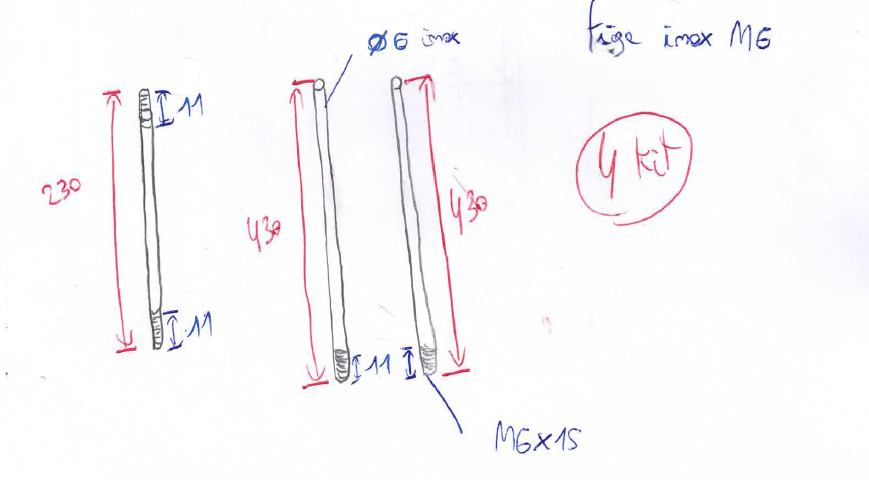 Ø6 inox
tige inox M6
11
230
4 kit
430
430
11
11
M6x15